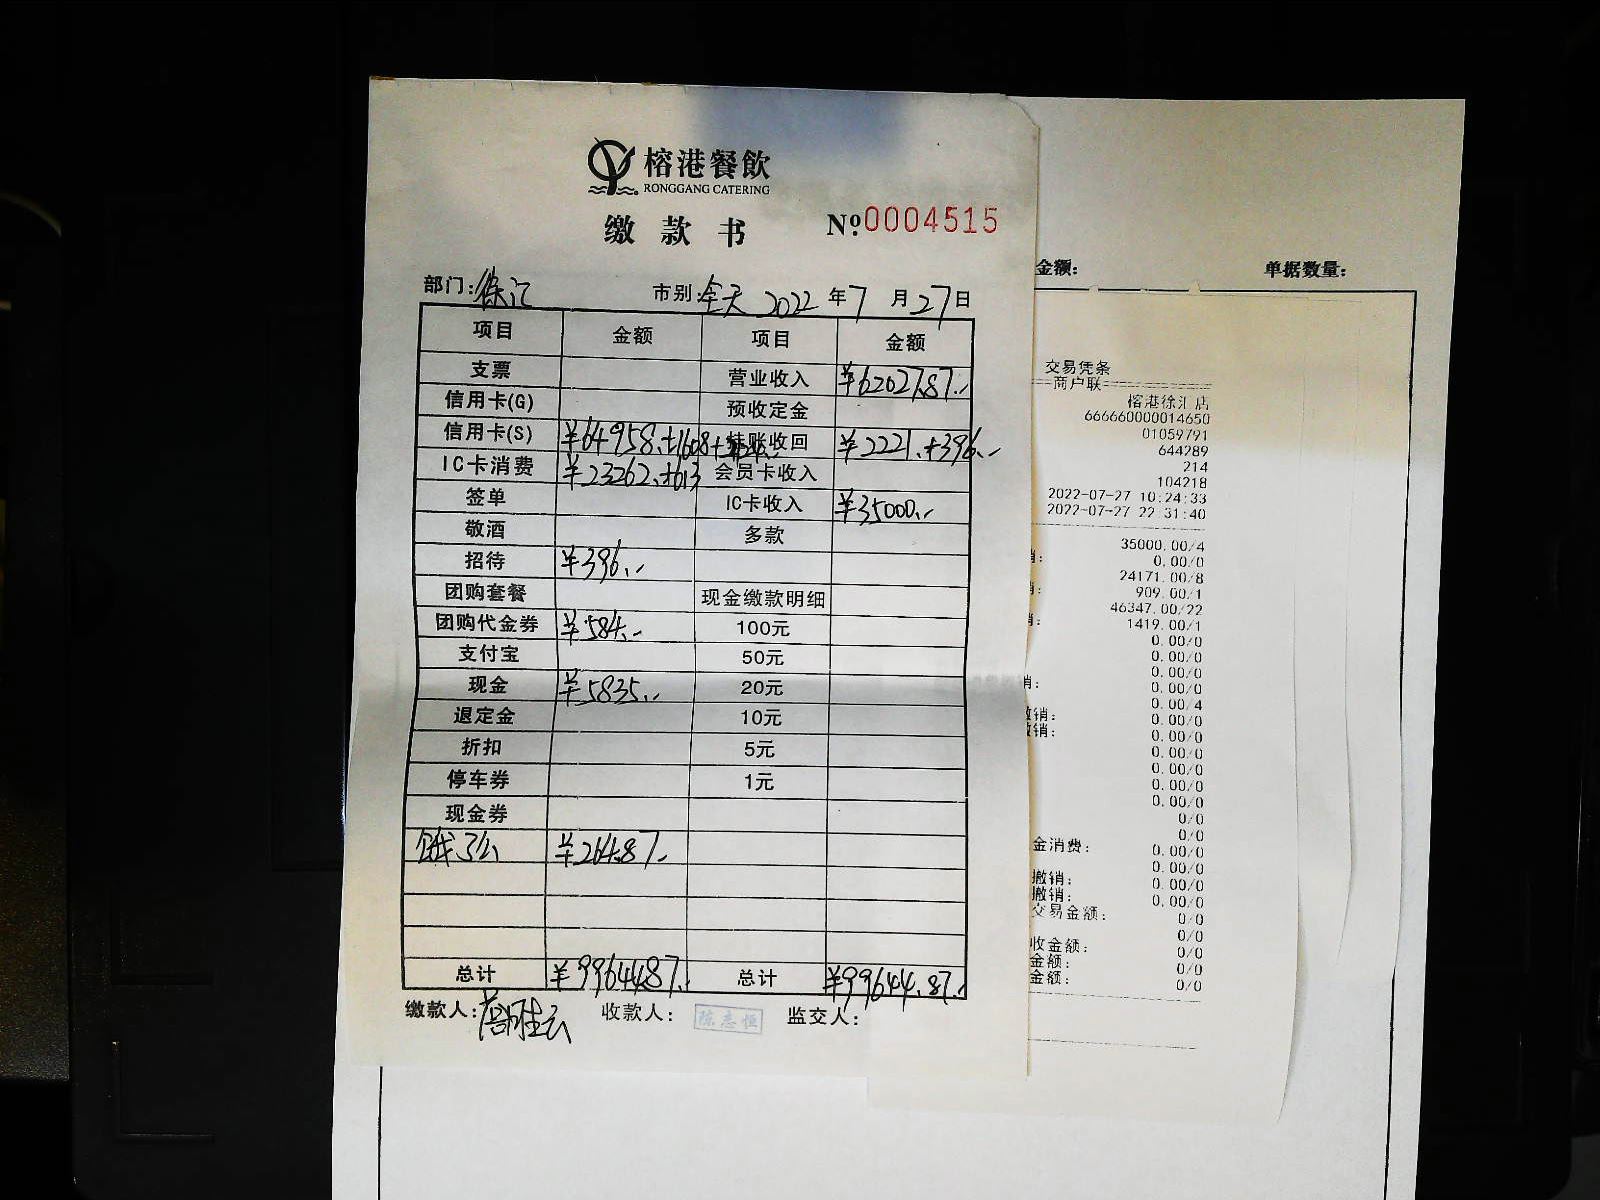 榕港餐飲
RONGGANG CATERING
缴款书 Nº:0004515
部门:徐汇 市别:全天 2022年7月27日
项目 金额 项目 金额
支票 营业收入 ¥62027.87.-
信用卡(G) 预收定金
信用卡(S) ¥64958.+1608+ 挂账收回 ¥2221.+396.-
IC卡消费 ¥23262.+613 会员卡收入
签单 IC卡收入 ¥35000.-
敬酒 多款
招待 ¥396.-
团购套餐 现金缴款明细
团购代金券 ¥584.- 100元
支付宝 50元
现金 ¥5835.- 20元
退定金 10元
折扣 5元
停车券 1元
现金券
饿了么 ¥264.87.-
总计 ¥99644.87. 总计 ¥99644.87.-
缴款人: 收款人: 陈志恒 监交人:
金额: 单据数量:
交易凭条
==商户联==
榕港徐汇店
666660000014650
01059791
644289
214
104218
2022-07-27 10:24:33
2022-07-27 22:31:40
35000.00/4
0.00/0
24171.00/8
909.00/1
46347.00/22
1419.00/1
0.00/0
0.00/0
0.00/0
销: 0.00/0
0.00/4
撤销: 0.00/0
撤销: 0.00/0
0.00/0
0.00/0
0.00/0
0.00/0
0/0
0/0
金消费: 0.00/0
0.00/0
撤销: 0.00/0
撤销: 0.00/0
交易金额: 0/0
0/0
收金额: 0/0
金额: 0/0
金额: 0/0